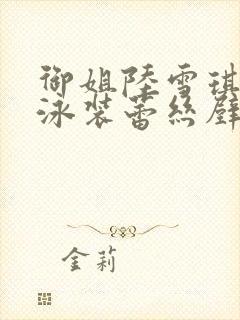 御姐陸雪琪
泳裝蕾絲
金莉